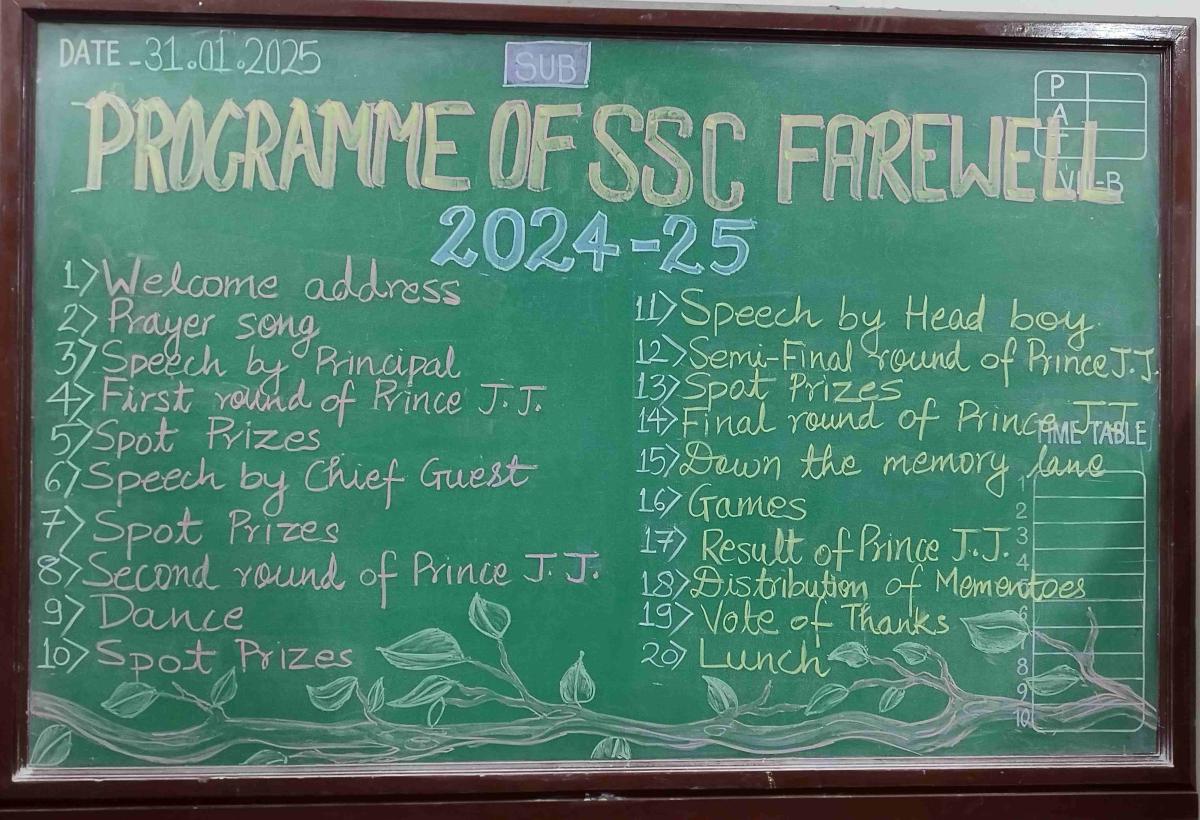 DATE - 31.01.2025
SUB
PROGRAMME OF SSC FAREWELL
2024-25
P
A
VII-B
1) Welcome address
2) Prayer song
3) Speech by Principal
4) First round of Prince J.J.
5) Spot Prizes
6) Speech by Chief Guest
7) Spot Prizes
8) Second round of Prince J.J.
9) Dance
10) Spot Prizes
11) Speech by Head boy.
12) Semi-Final round of Prince J.J.
13) Spot Prizes
14) Final round of Prince J.J.
15) Down the memory lane
16) Games
17) Result of Prince J.J.
18) Distribution of Mementoes
19) Vote of Thanks
20) Lunch
TIME TABLE
1
2
3
4
5
6
8
9
10